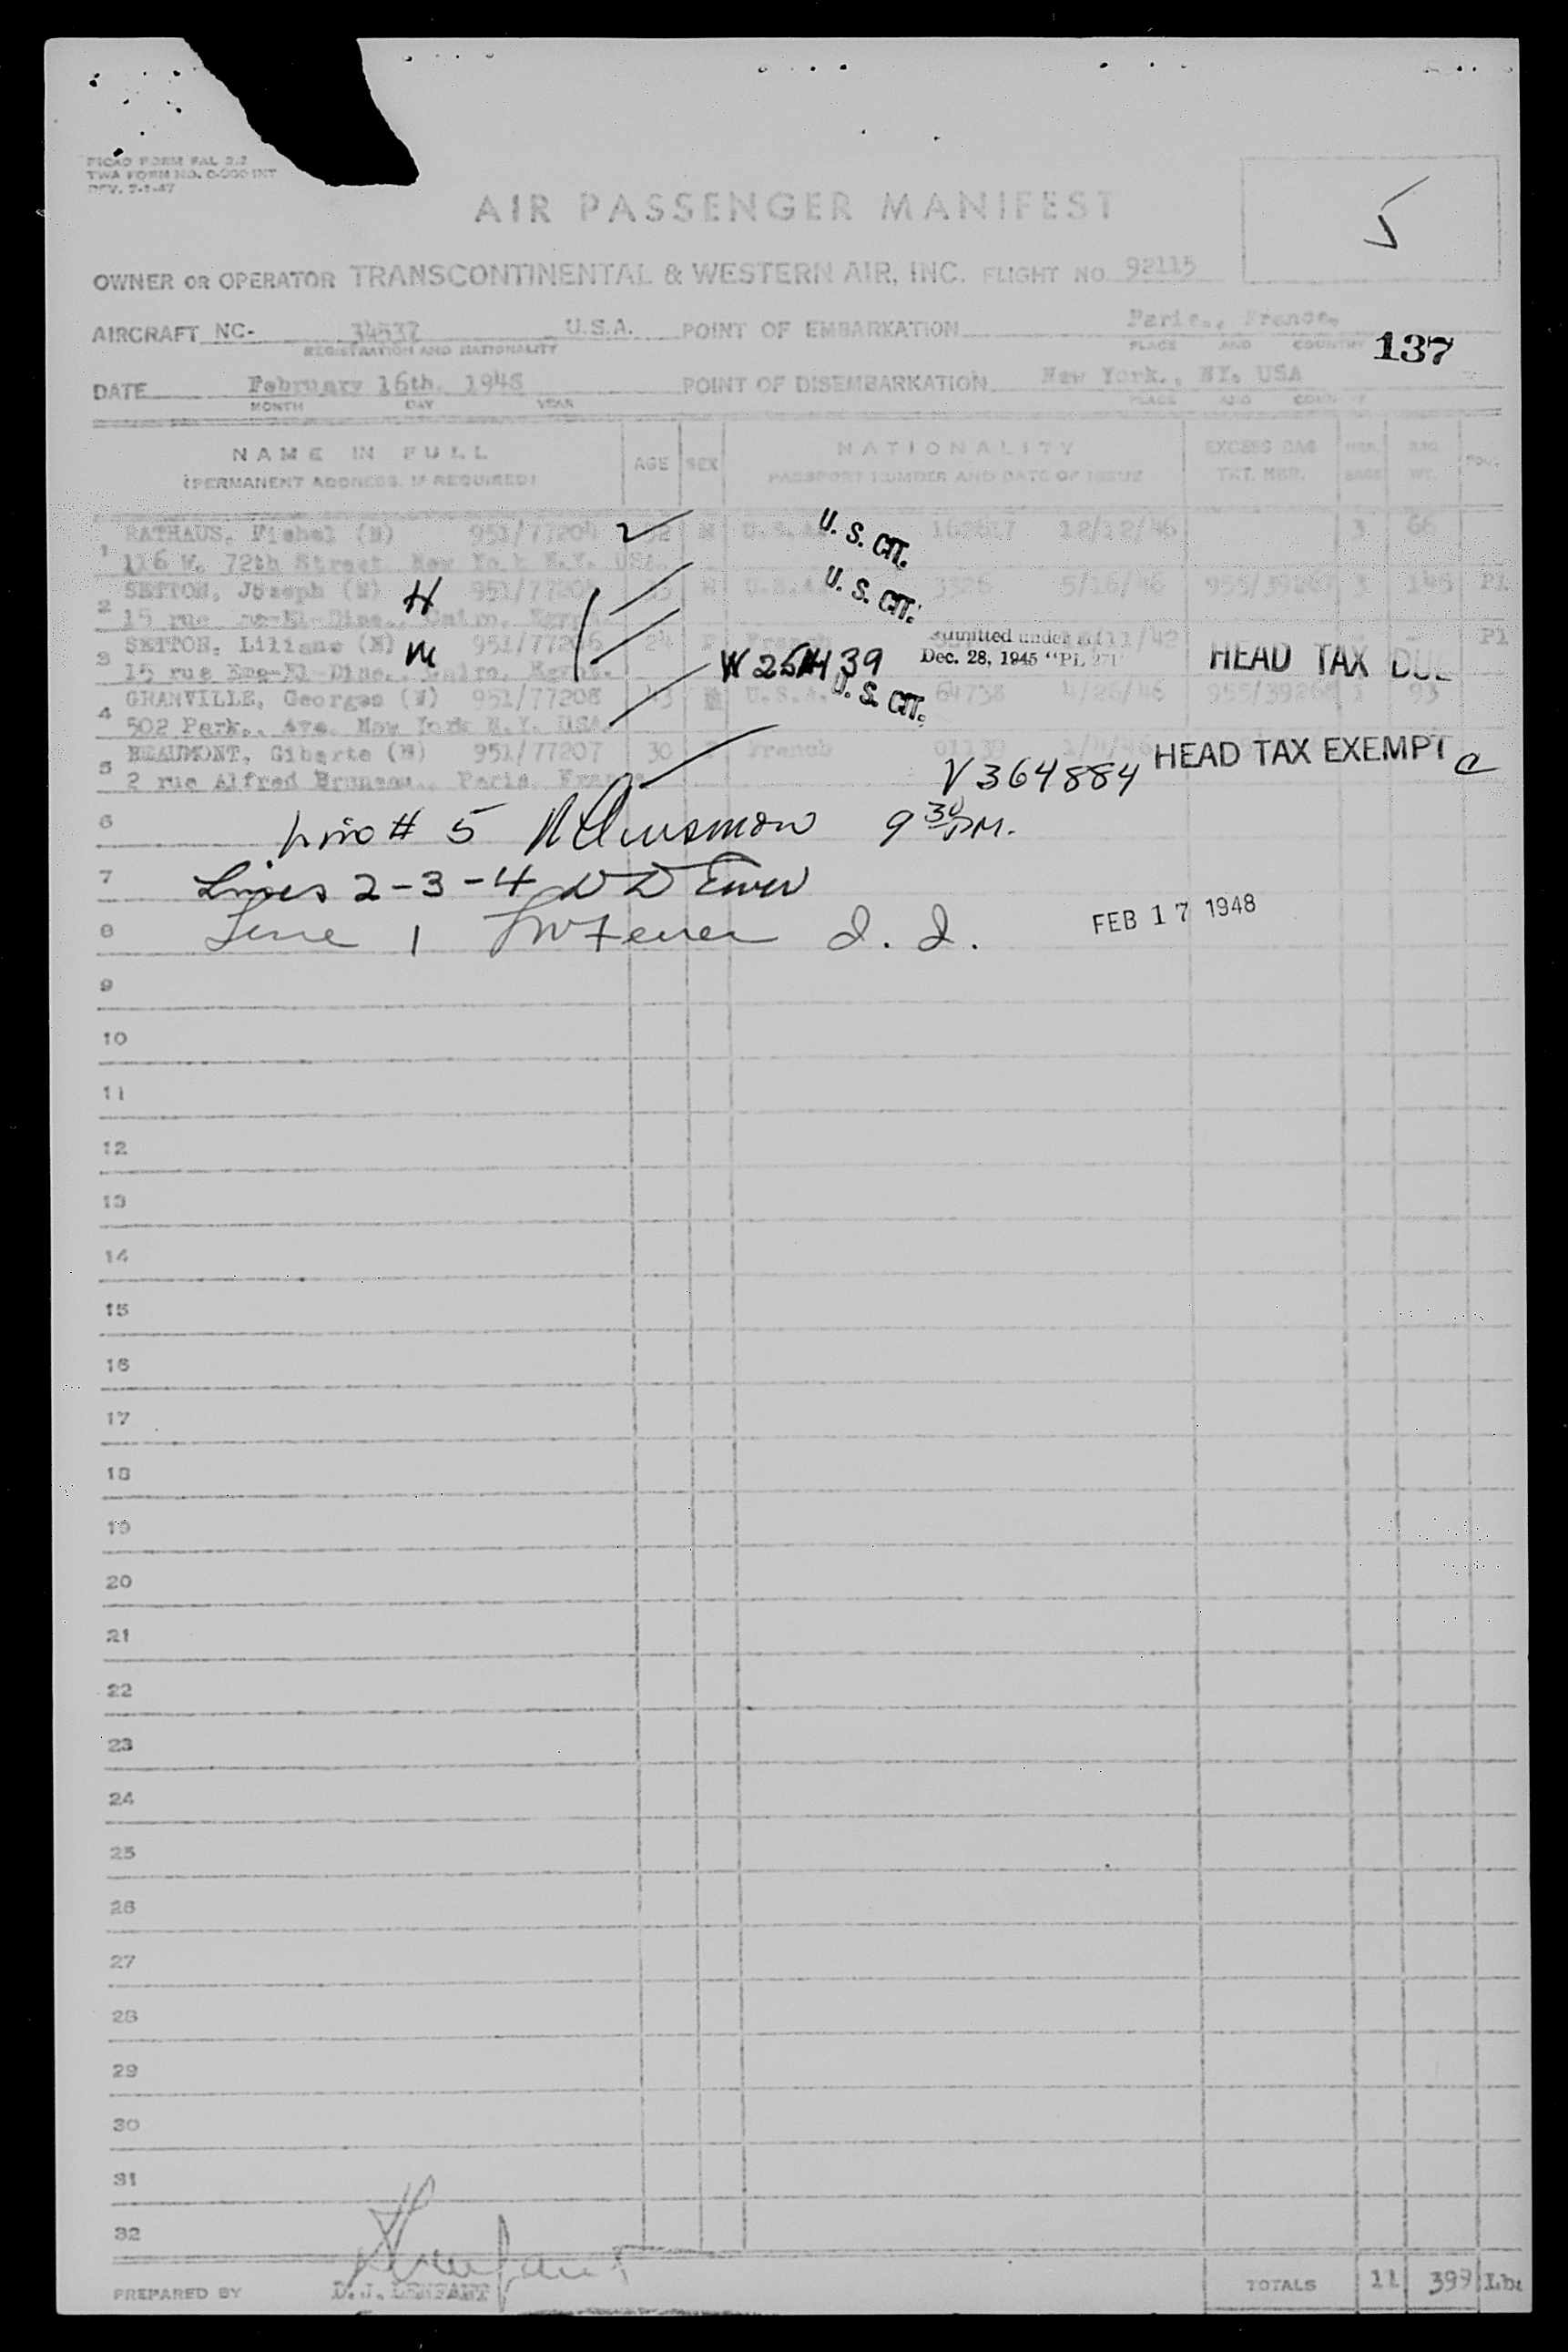 PICAO FORM FAL 2.2
TWA FORM NO. O-200 INT
REV. 7-1-47
5
AIR PASSENGER MANIFEST
OWNER OR OPERATOR TRANSCONTINENTAL & WESTERN AIR, INC. FLIGHT NO. 92115
AIRCRAFT NC- 34537 U.S.A. POINT OF EMBARKATION Paris., France.
REGISTRATION AND NATIONALITY PLACE AND COUNTRY
137
DATE February 16th. 1948 POINT OF DISEMBARKATION New York., NY. USA
MONTH DAY YEAR PLACE AND COUNTRY
NAME IN FULL AGE SEX NATIONALITY EXCESS BAG
(PERMANENT ADDRESS, IF REQUIRED) PASSPORT NUMBER AND DATE OF ISSUE TKT. NBR. WT.
1 RATHAUS, Fishel (N) 951/77204 M U.S.A. U. S. CIT. 12/12/46 3 66
116 W. 72th Street New York N.Y. USA.
2 SETTON, Joseph (N) H 951/77205 M U.S.A. U. S. CIT. 3326 5/16/46 3 145 Pl
15 rue Eme-El-Dine., Cairo, Egypt.
3 SETTON, Liliane (N) M 951/77206 24 F French Admitted under 11/42 HEAD TAX DUE Pl
15 rue Eme-El-Dine., Cairo, Egypt. Dec. 28, 1945 "PL 271
4 GRANVILLE, Georges (N) 951/77208 M U.S.A. U. S. CIT. 64738 4/26/46 93
502 Park., Ave. New York N.Y. USA.
5 BEAUMONT, Giberte (N) 951/77207 30 F French HEAD TAX EXEMPT
2 rue Alfred Bruneau., Paris France V364884
6 Line # 5 9 30 PM.
7 Lines 2-3-4
8 Line 1 FEB 17 1948
9
10
11
12
13
14
15
16
17
18
19
20
21
22
23
24
25
26
27
28
29
30
31
32
PREPARED BY D.J. LENFANT TOTALS 11 399 Lbs